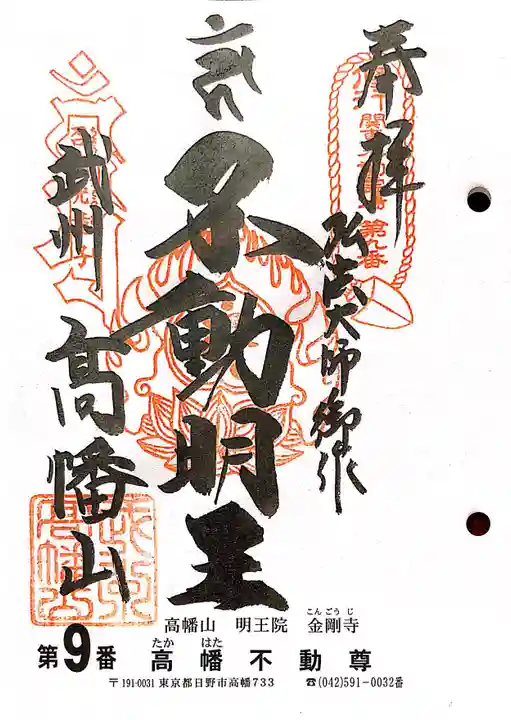 奉拝
弘法大師御作
不動明王
武州
高幡山
関東
第九番
高幡山 明王院 金剛寺
こんごうじ
第9番 高幡不動尊
たか はた
〒191-0031 東京都日野市高幡733 ☎(042)591-0032番